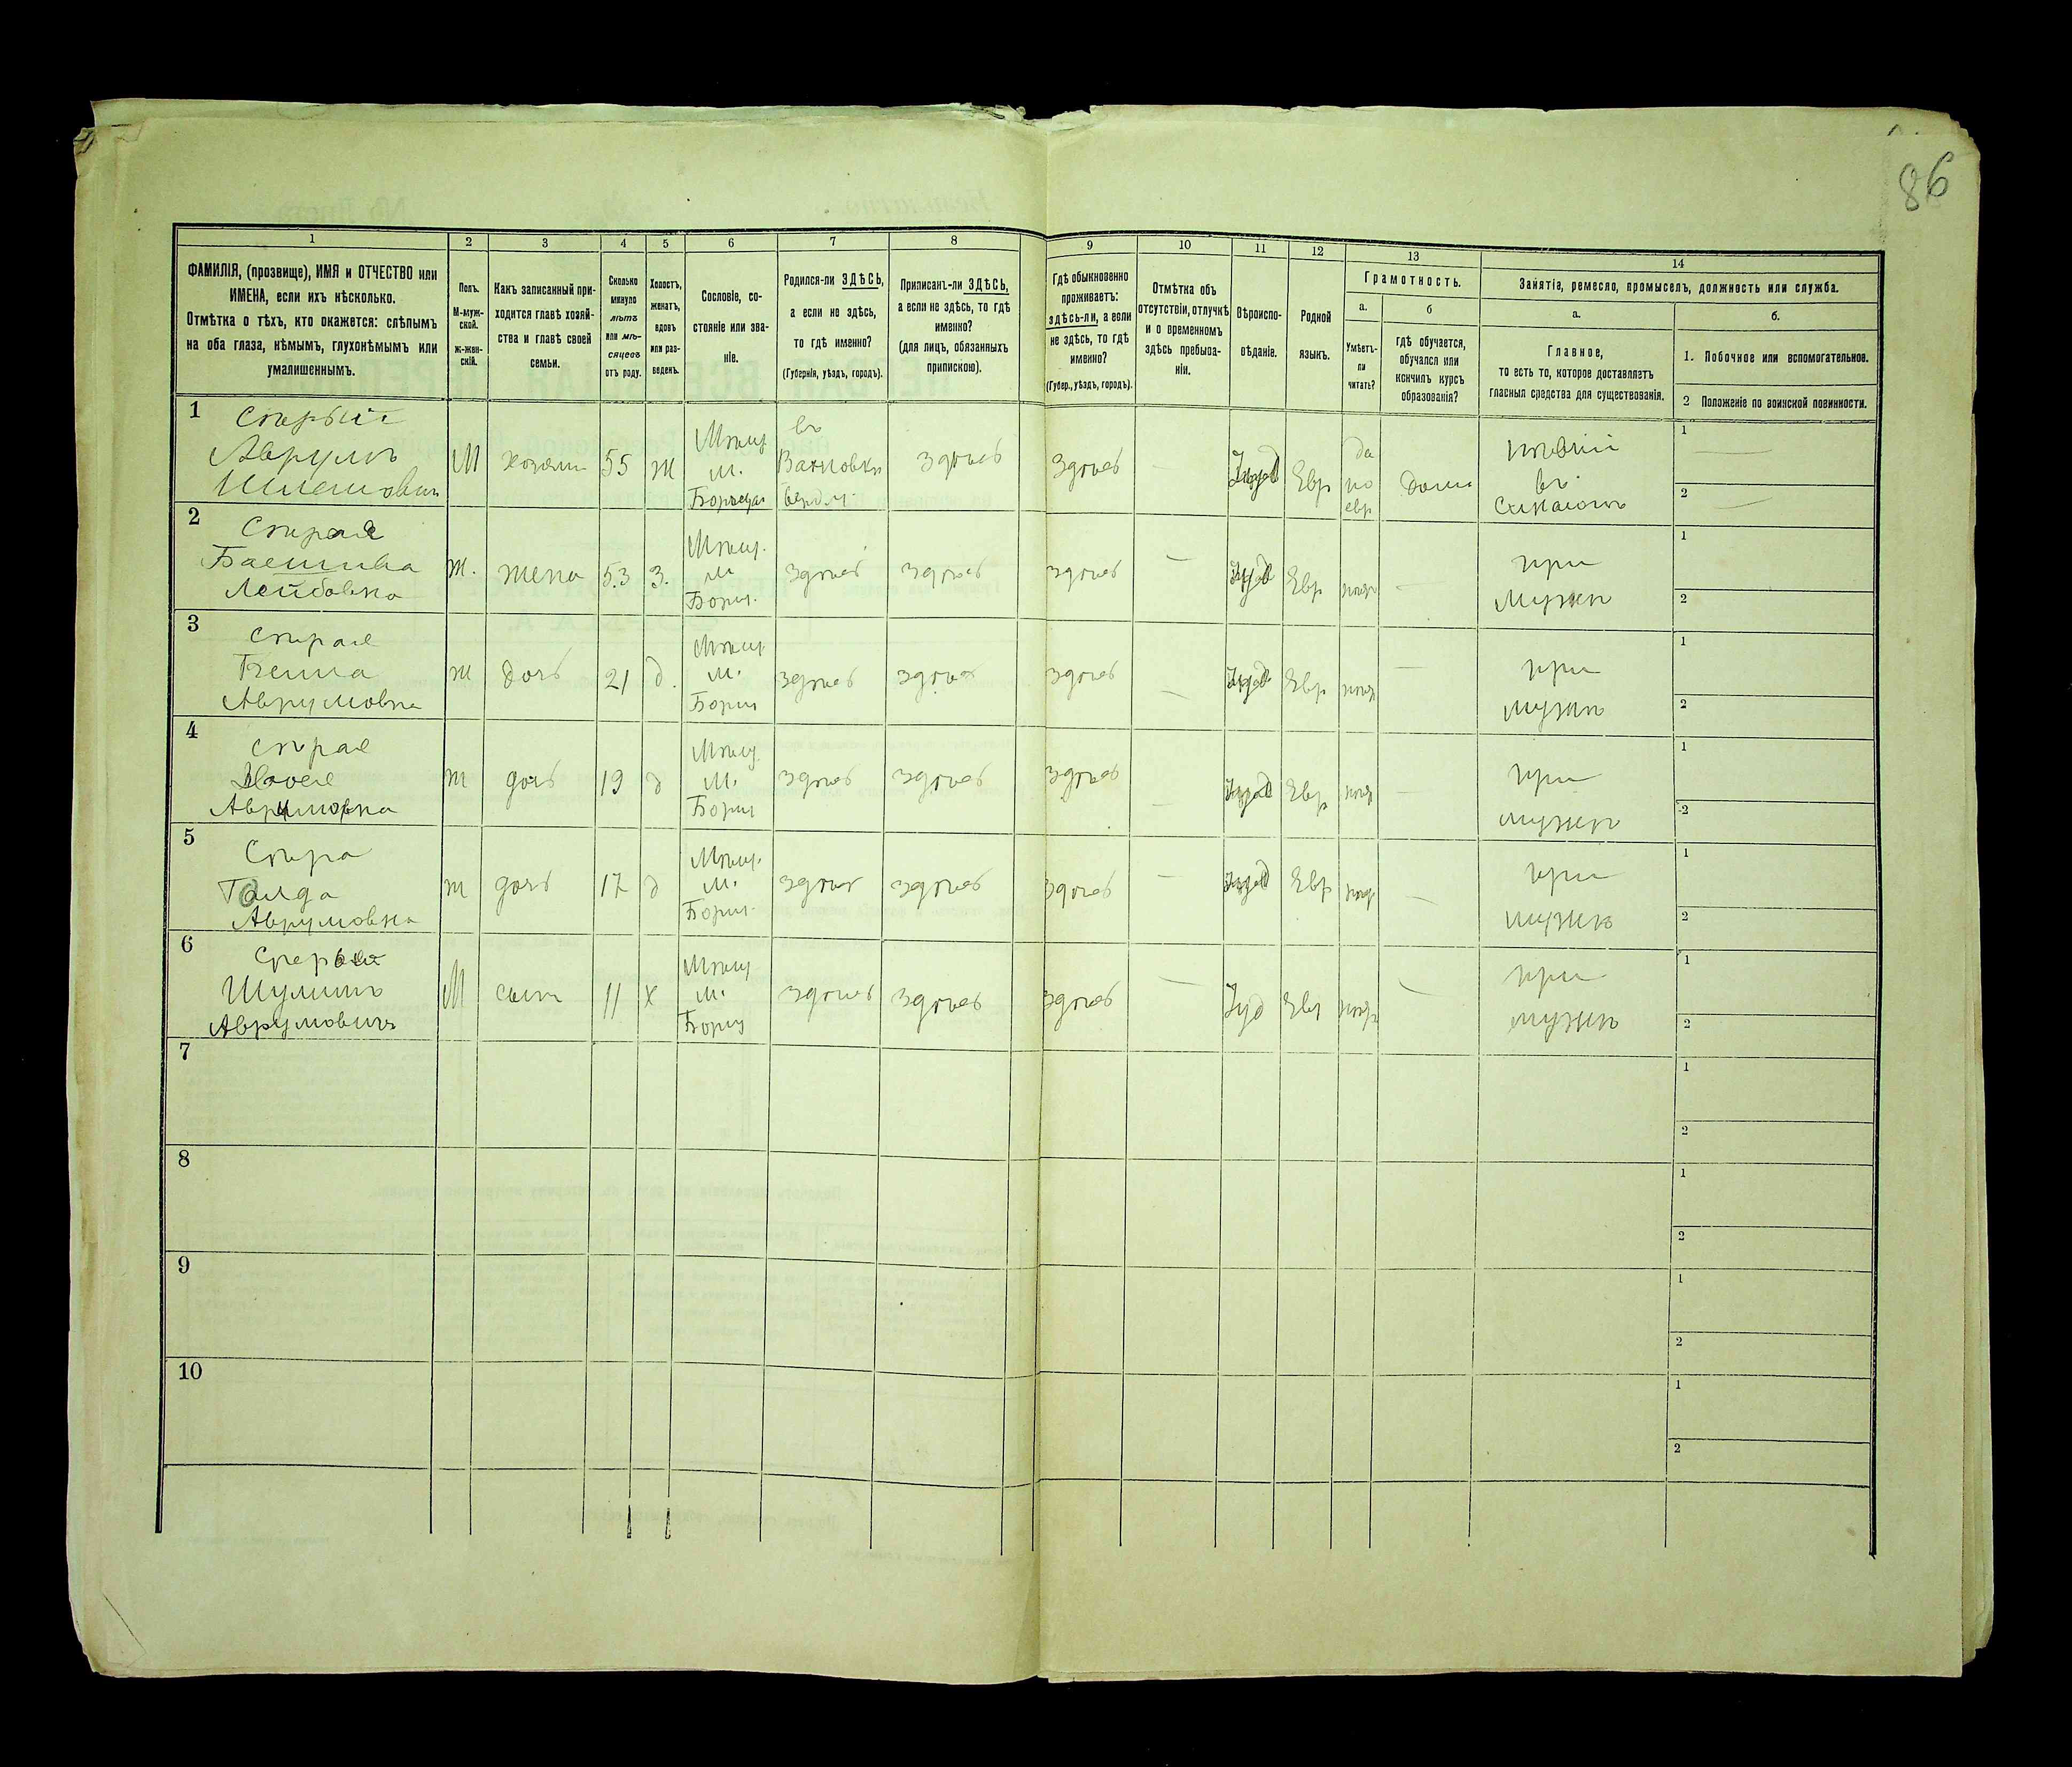 86
1 2 3 4 5 6 7 8 9 10 11 12 13 14
ФАМИЛІЯ, (прозвище), ИМЯ и ОТЧЕСТВО или
ИМЕНА, если ихъ нѣсколько.
Отмѣтка о тѣхъ, кто окажется: слѣпымъ
на оба глаза, нѣмымъ, глухонѣмымъ или
умалишеннымъ.
Полъ.
М-муж-
ской.
Ж-жен-
скій.
Какъ записанный при-
ходится главѣ хозяй-
ства и главѣ своей
семьи.
Сколько
минуло
лѣтъ
или мѣ-
сяцевъ
отъ роду.
Холостъ,
женатъ,
вдовъ
или раз-
веденъ.
Сословіе, со-
стояніе или зва-
ніе.
Родился-ли ЗДѢСЬ,
а если не здѣсь,
то гдѣ именно?
(Губернія, уѣздъ, городъ).
Приписанъ-ли ЗДѢСЬ,
а если не здѣсь, то гдѣ
именно?
(для лицъ, обязанныхъ
припискою).
Гдѣ обыкновенно
проживаетъ:
здѣсь-ли, а если
не здѣсь, то гдѣ
именно?
(Губер., уѣздъ, городъ).
Отмѣтка объ
отсутствіи, отлучкѣ
и о временномъ
здѣсь пребыва-
ніи.
Вѣроиспо-
вѣданіе.
Родной
языкъ.
Грамотность.
а.
Умѣетъ-
ли
читать?
б
гдѣ обучается,
обучался или
кончилъ курсъ
образованія?
Занятіе, ремесло, промыселъ, должность или служба.
а.
Главное,
то есть то, которое доставляетъ
главныя средства для существованія.
б.
1. Побочное или вспомогательное.
2 Положеніе по воинской повинности.
1
Старый
Аврумъ
М хозяин 55 ж
Мѣщ.
м.
въ
Вахновки
здѣсь здѣсь — Іуд Евр
да
по
евр
дома
въ
1 —
2 —
2
Лейбовна
ж. жена 53 З.
Мѣщ.
м
Борщ.
здѣсь здѣсь здѣсь — Іуд Евр —
при
мужѣ
1
2
3
Аврумовна
ж дочь 21 д.
Мѣщ.
м.
Борщ
здѣсь здѣсь здѣсь — Іуд Евр —
при
мужѣ
1
2
4
Аврумовна
ж дочь 19 д
Мѣщ.
М.
Борщ
здѣсь здѣсь здѣсь — Іуд Евр —
при
мужѣ
1
2
5
Голда
Аврумовна
ж дочь 17 д
Мѣщ.
М.
Борщ.
здѣсь здѣсь здѣсь — Іуд Евр —
при
мужѣ
1
2
6
Шулимъ
Аврумовичъ
М сынъ 11 х
Мѣщ
м.
Борщ
здѣсь здѣсь здѣсь — Іуд Евр —
при
мужѣ
1
2
7
1
2
8
1
2
9
1
2
10
1
2